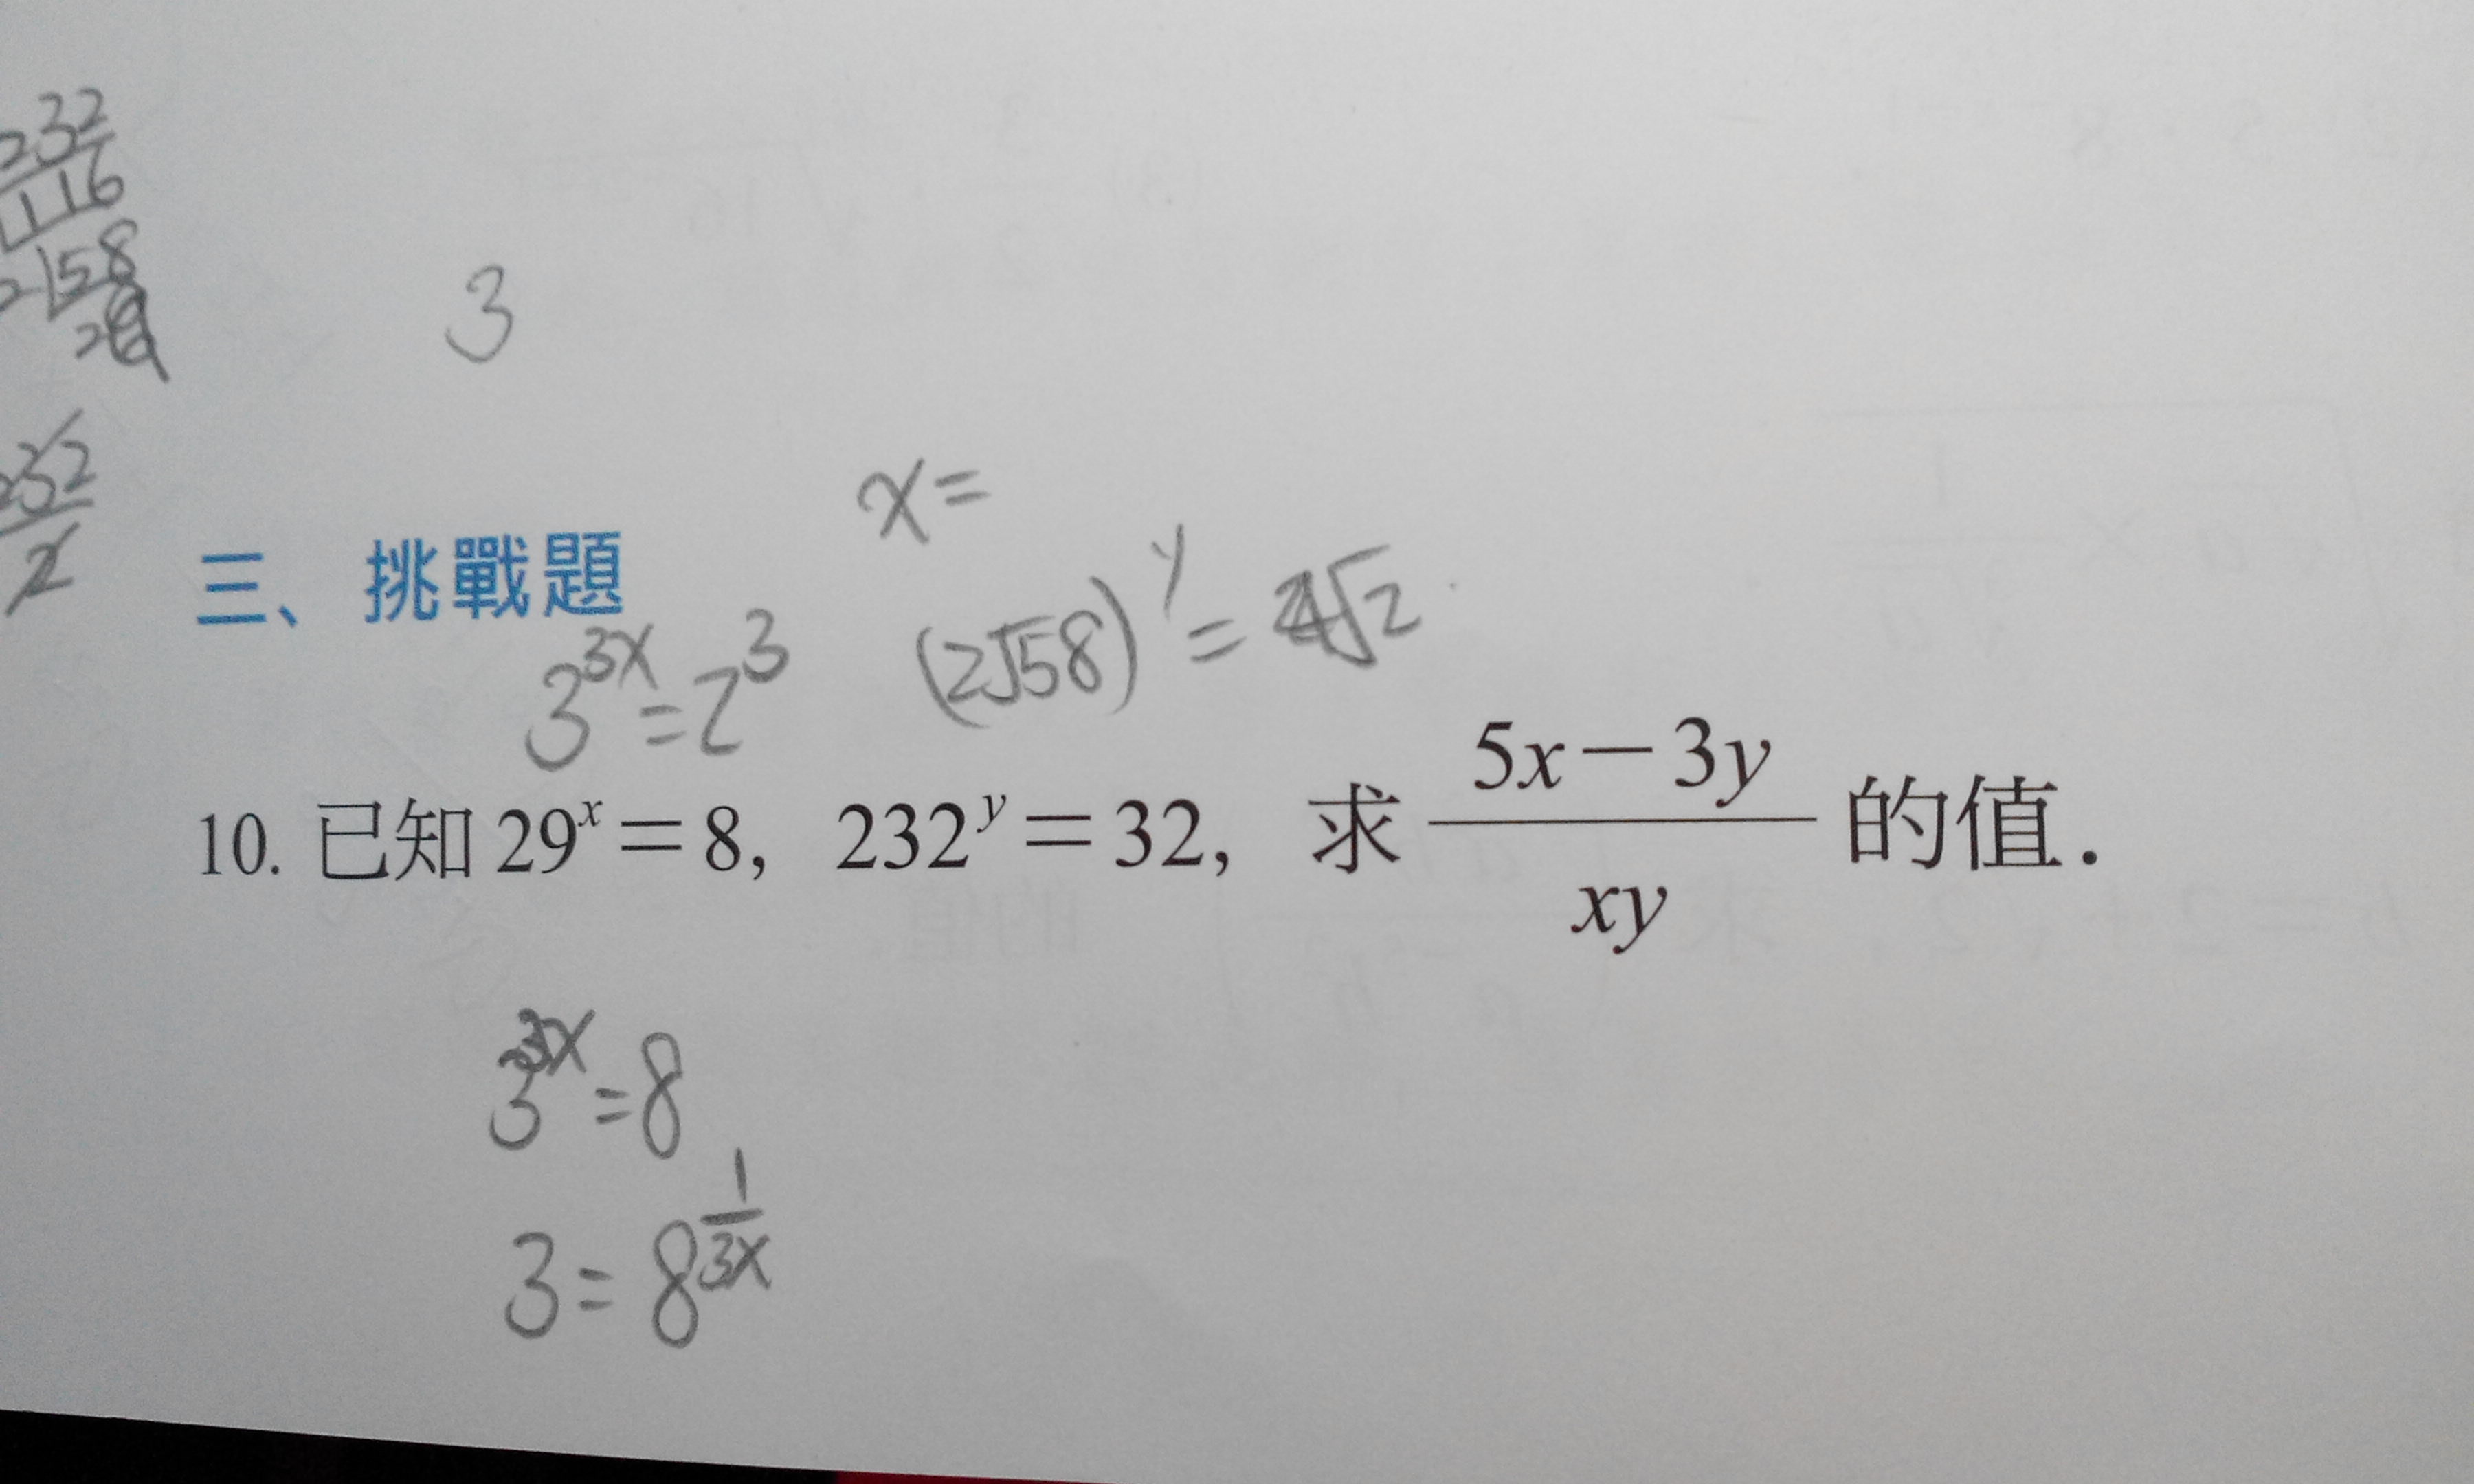 232
116
2 58
3
232
2
x=
三、挑戰題
3^{3x}=2^3
(2√58)^y=4√2
10. 已知 29^x=8, 232^y=32, 求 \frac{5x-3y}{xy} 的值.
3^{3x}=8
3=8^{\frac{1}{3x}}